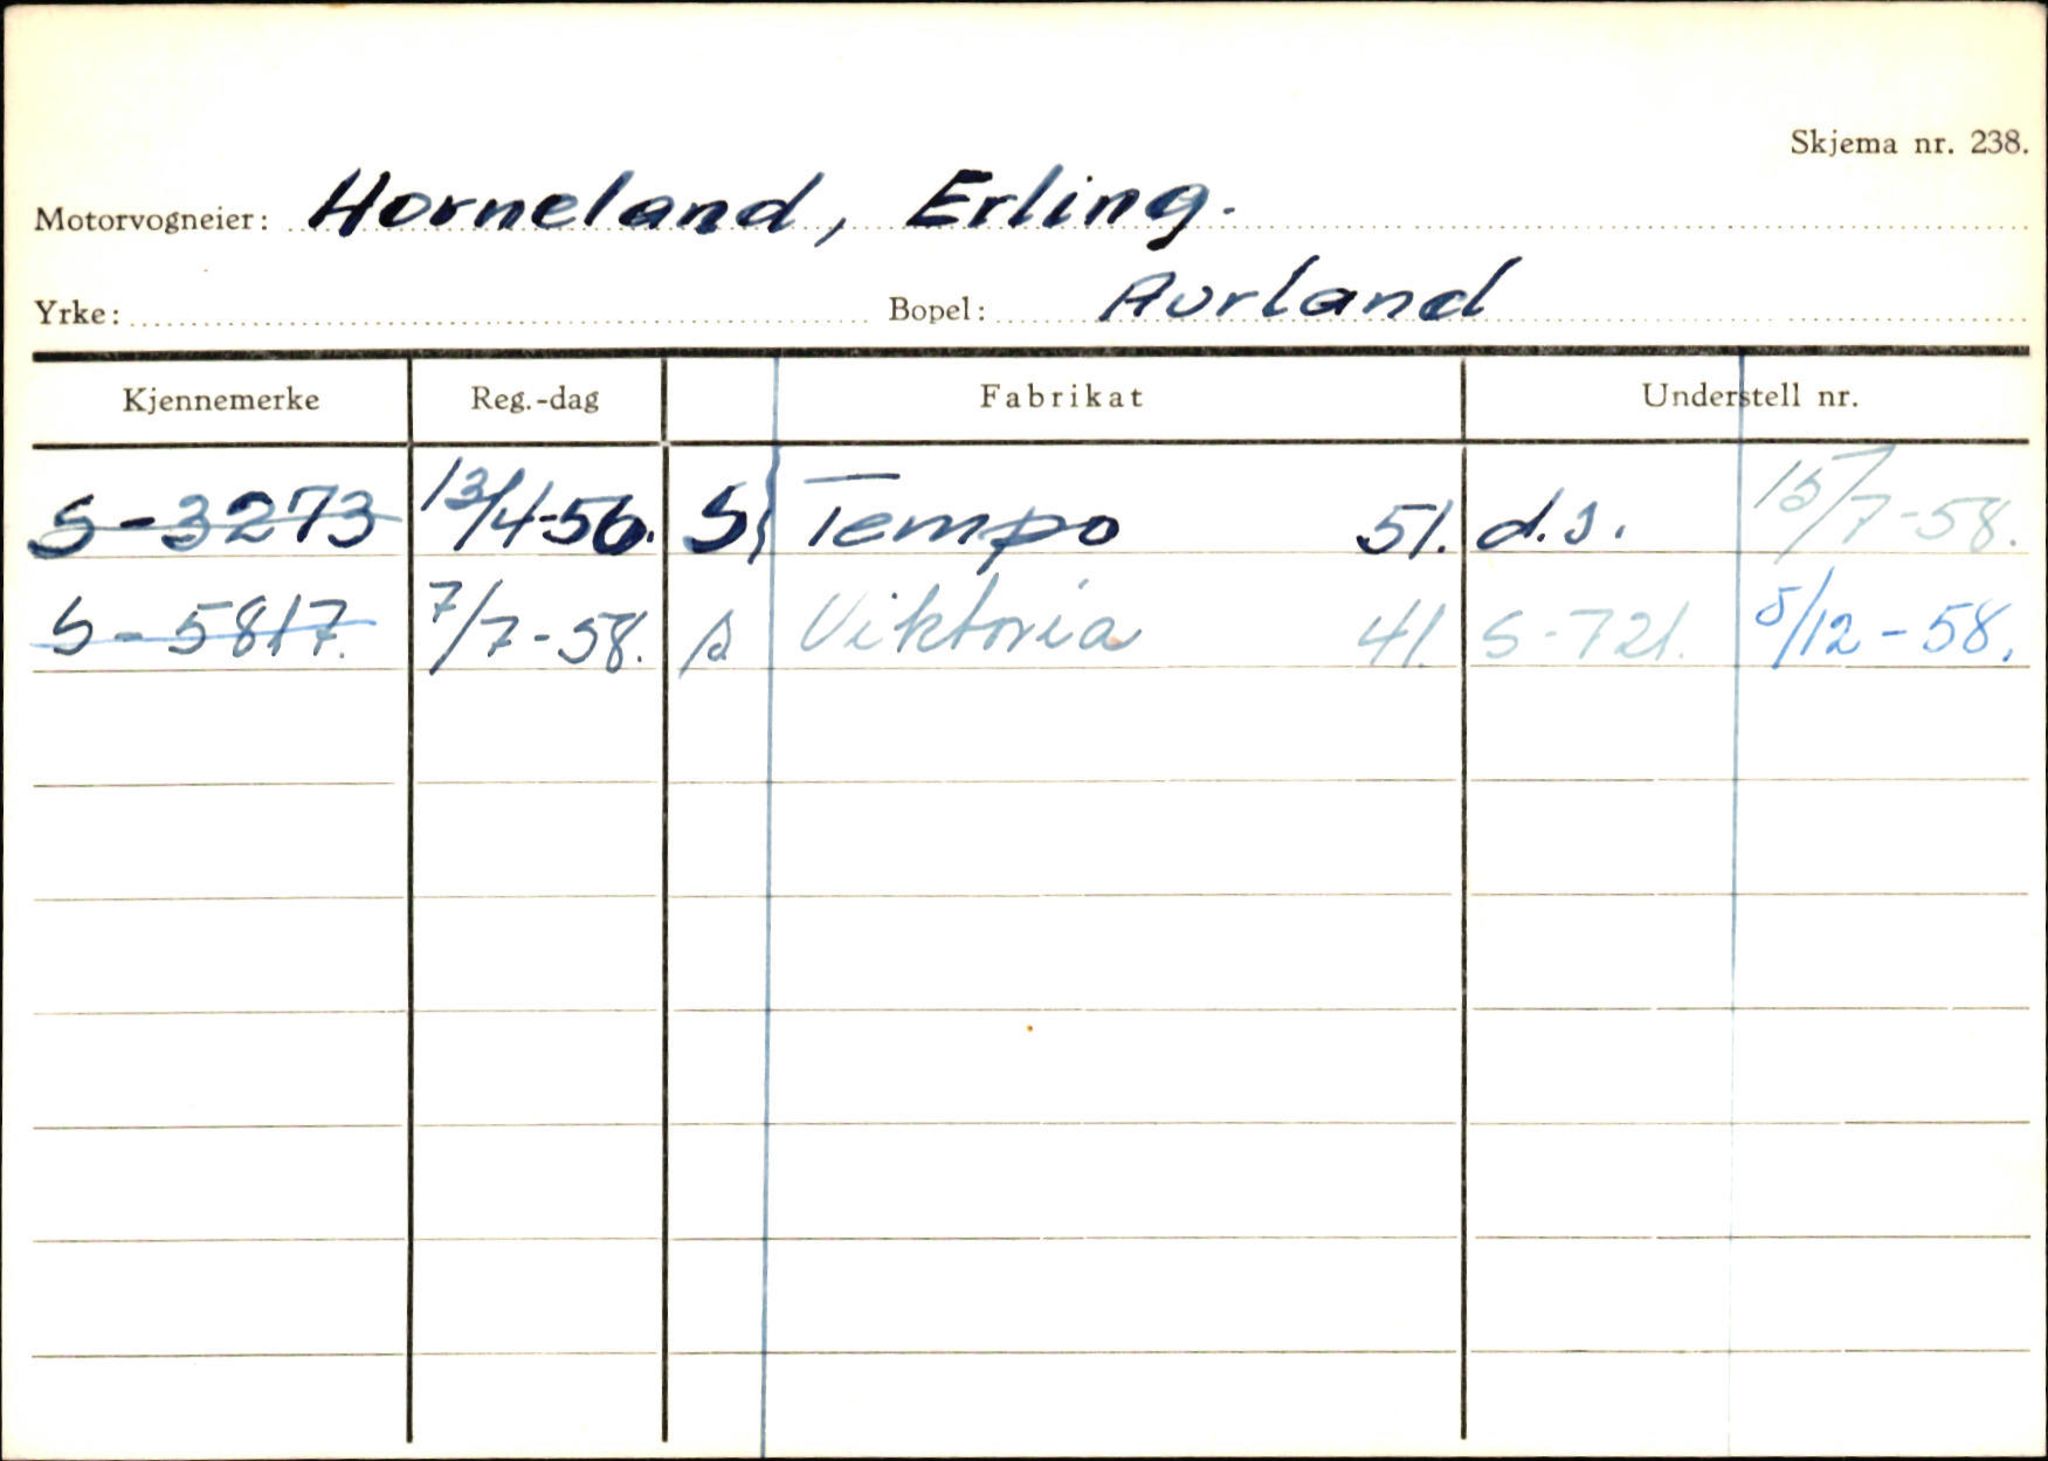 Skjema nr. 238.
Motorvogneier: Horneland, Erling.
Yrke: Bopel: Aurland
Kjennemerke Reg.-dag Fabrikat Understell nr.
S-3273 13/4-56. S, Tempo 51. d.s. 15/7-58.
S-5817. 7/7-58. s Viktoria 41. S-721. 5/12-58.